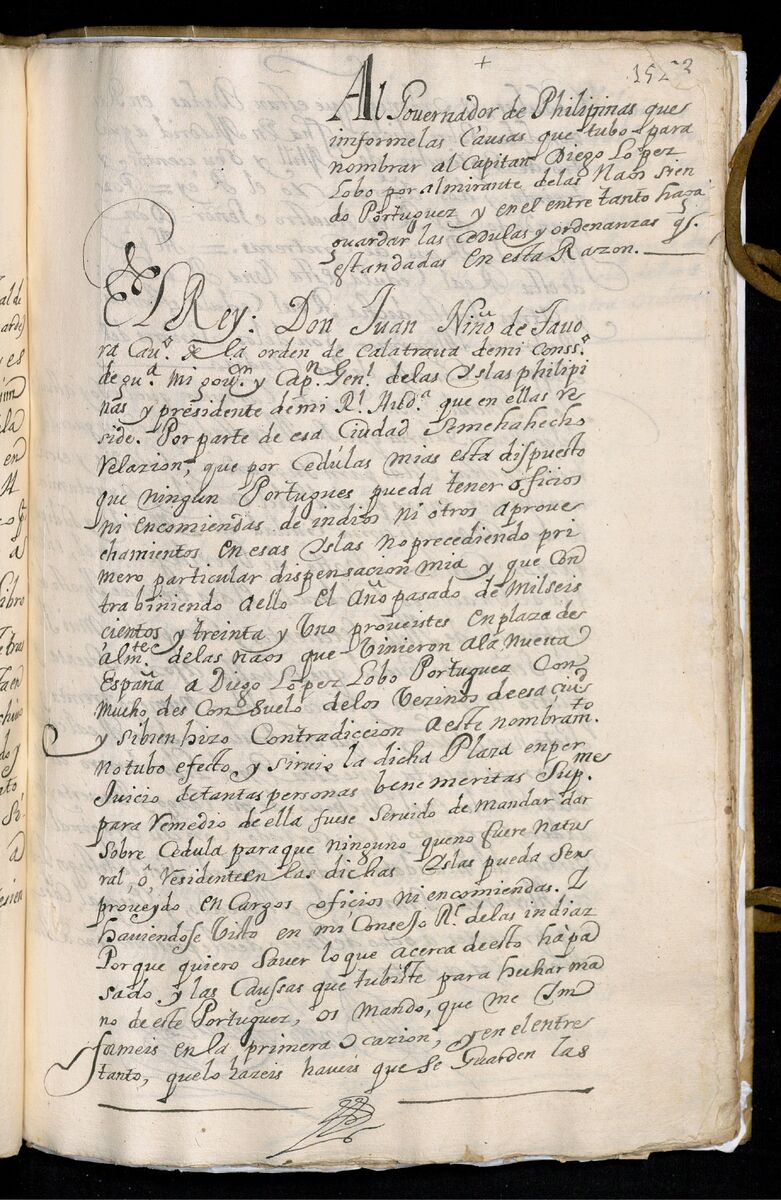 +
Al Governador de Philipinas que
informe las Causas que tubo para
nombrar al Capitan Diego Lopez
Lobo por almirante de las Naos sien
do Portuguez y en el entre tanto haga
guardar las Cedulas y ordenanzas qe.
estan dadas En esta Razon.
El Rey: Don Juan Niño de Tavo
ra Cavo. de la orden de Calatrava de mi Consso.
de gua. Mi govor. y Capn. Genl. de las Yslas philipi
nas y presidente de mi Rl. Auda. que en ellas re
side. Por parte de esa Ciudad Semehahecho
Relazion, que por Cedulas mias esta dispuesto
que ningun Portugues pueda tener oficios
ni encomiendas de indios ni otros aprove
chamientos en esas Yslas no precediendo pri
mero particular dispensacion mia y que Con
trabiniendo aello el Año pasado de Milseis
cientos y treinta y Uno proveistes en plaza de
almte. de las naos que Vinieron ala Nueva
España a Diego Lopez Lobo Portuguez Con
Mucho desConsuelo delos Vezinos de esa Ciud
y sibien hizo Contradiccion aeste nombramto.
no tubo efecto y Sirvio la dicha Plaza en per
Juicio de tantas personas benemeritas Supme.
para remedio de ella fuese Servido de mandar dar
Sobre Cedula para que ninguno que no fuere Natu
ral, ô, Residente en las dichas Yslas pueda Ser
proveydo en Cargos oficios ni encomiendas. Y
haviendose Visto en mi Consejo Rl. delas indiaz
Porque quiero Saver lo que acerca de esto hà pa
sado y las Caussas que tubiste para hechar ma
no de este Portuguez, os Mando, que me In
formeis en la primera Ocazion, y en el entre
tanto, que lo hazeis haveis que Se Guarden las